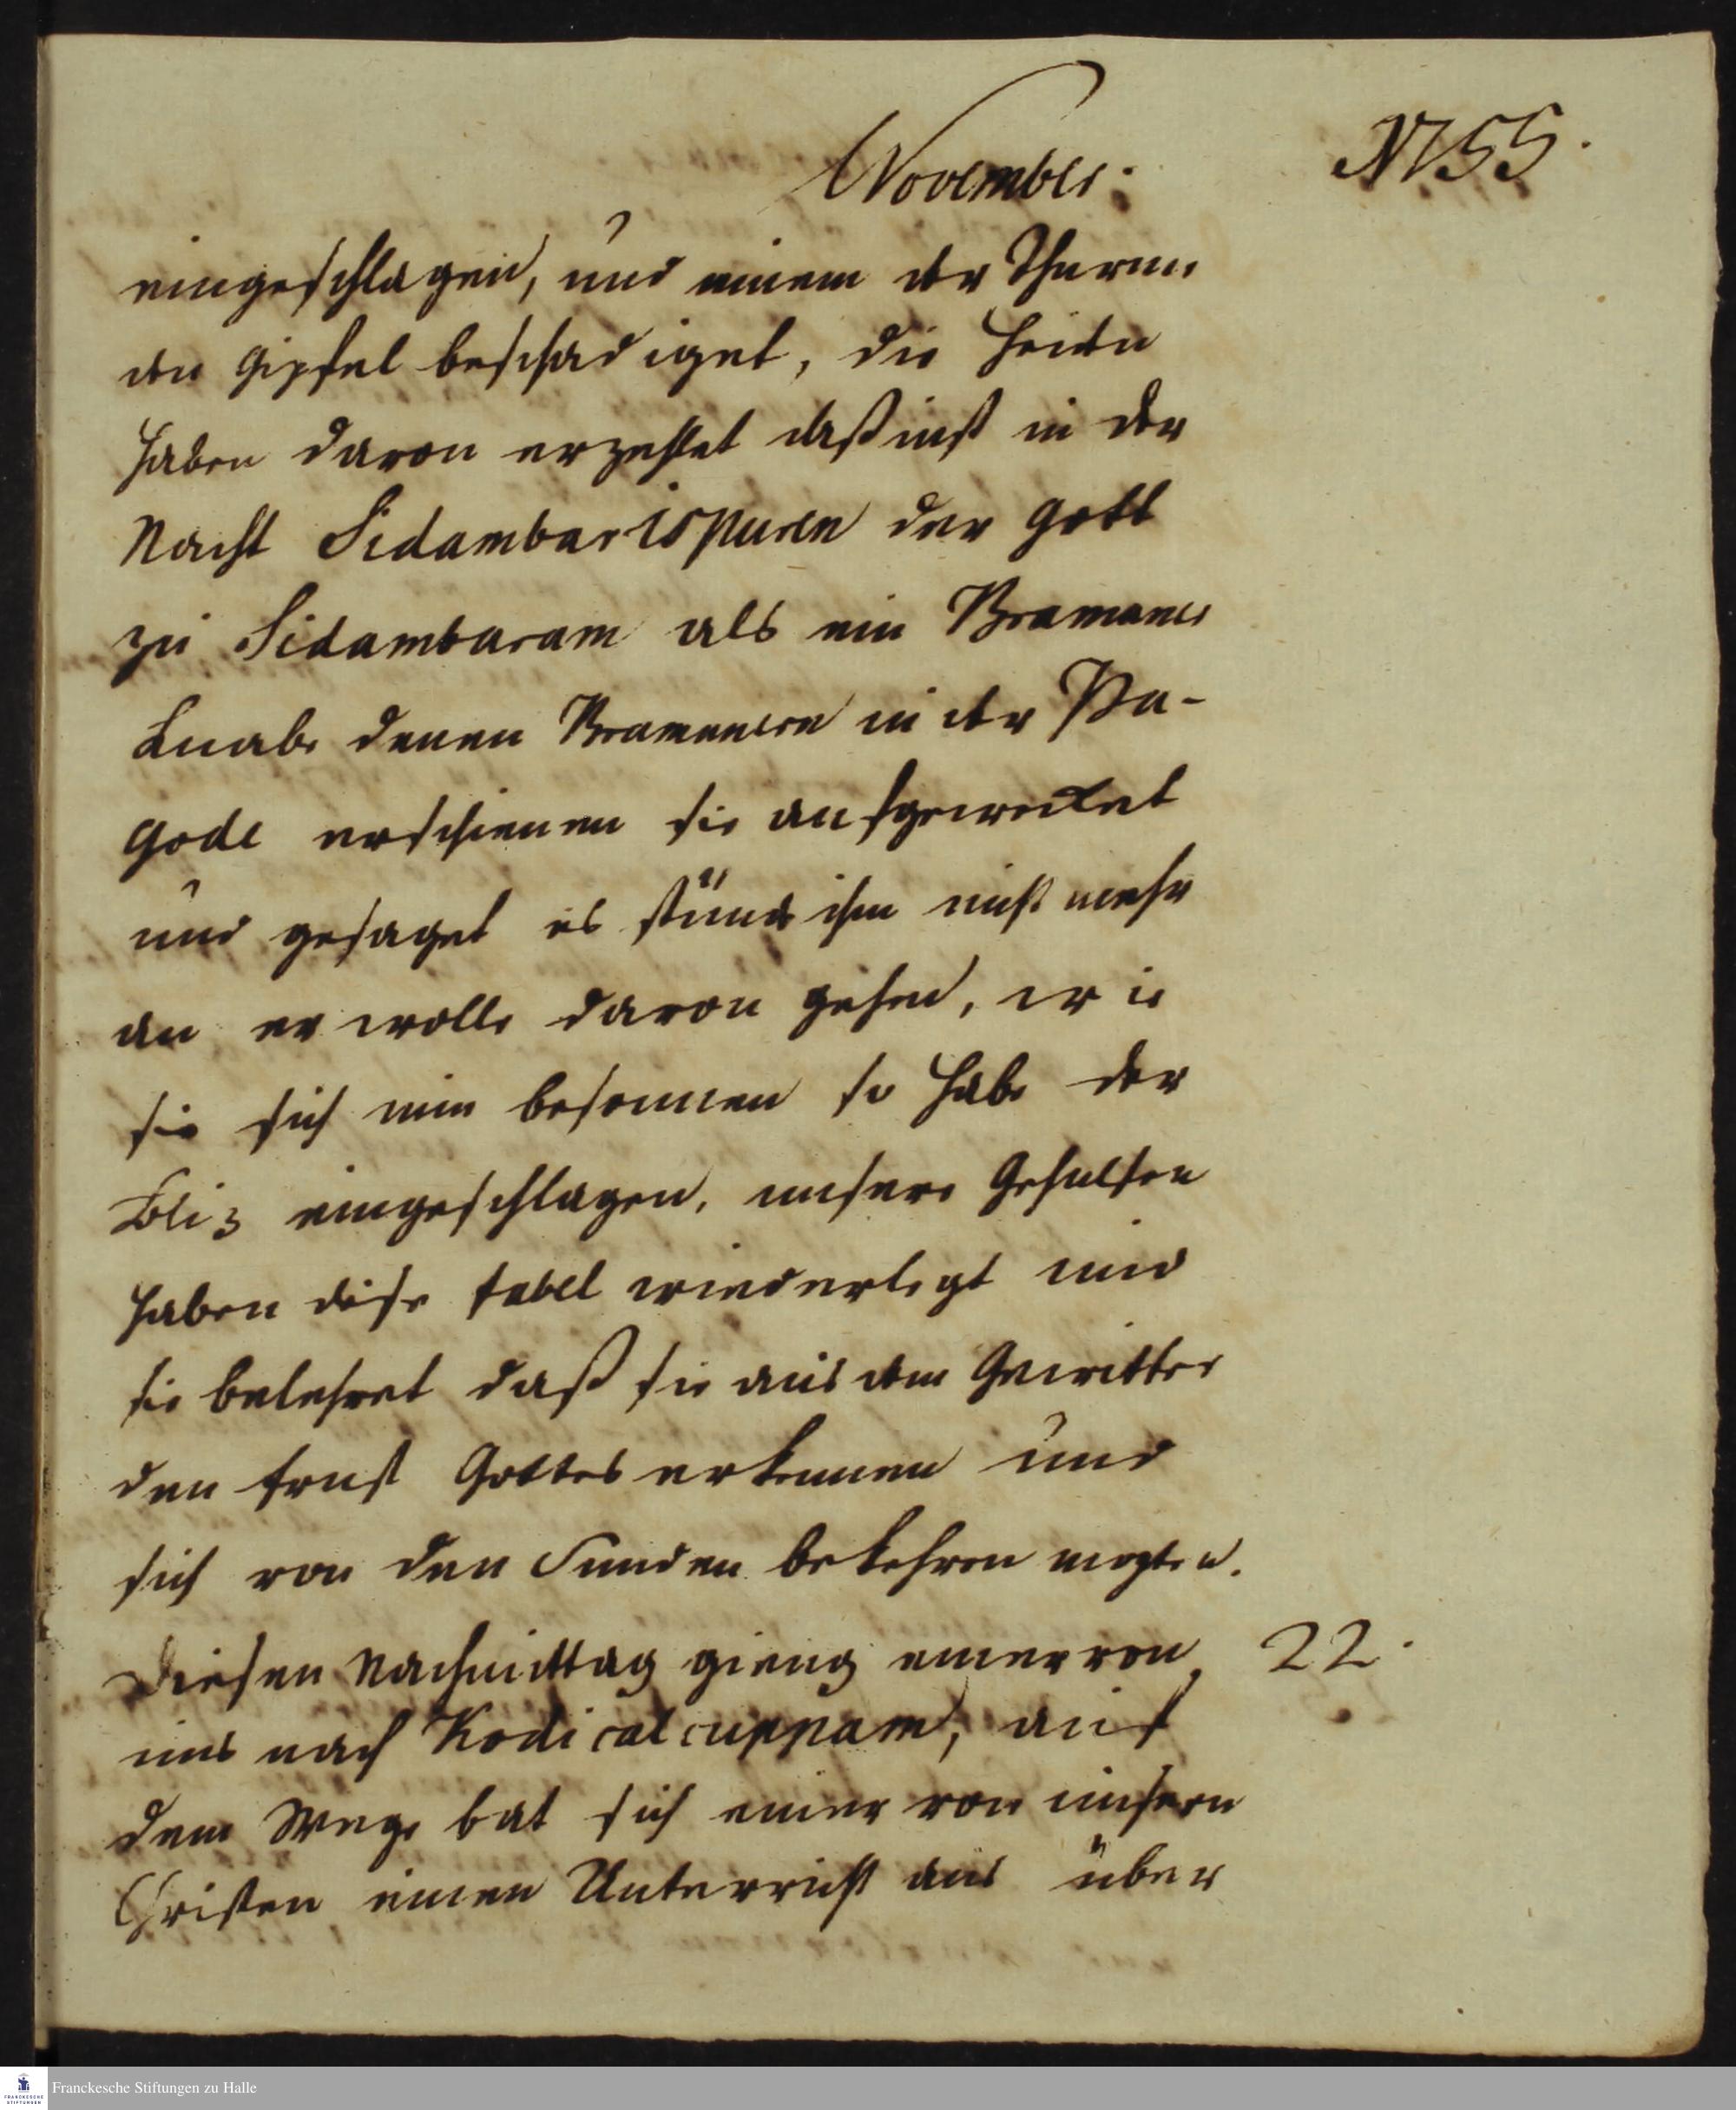 November.
N 55.
eingeschlagen, und einem der Thurme
den Gipfel beschadiget, die Heiden
haben davon erzehlet daß in der
Nacht Sidambarispuren der Gott
zu Sidambaram als ein Bramaner
Knabe denen Bramanern in der Pa-
gode erschienen sie aufgewecket
und gesaget es stünde ihm nicht mehr
an er wolle davon gehen, ehe
sie sich nun besonnen so habe der
Bliz eingeschlagen. unsere Gehulfen
haben diese fabel wiederlegt und
sie belehret daß sie aus dem Gewitter
den Ernst Gottes erkennen und
sich von den Sunden bekehren mogten.
Diesen Nachmittag gieng einer von 22.
uns nach Kodicalcuppam, auf
dem Wege bat sich einer von unsern
Christen einen Unterricht aus über
Franckesche Stiftungen zu Halle